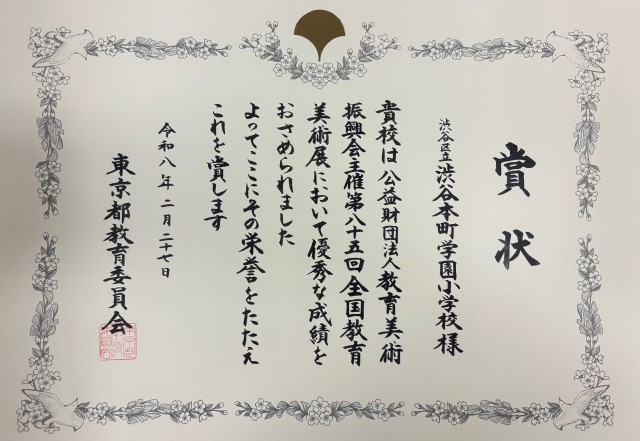 賞状
渋谷区立渋谷本町学園小学校様
貴校は公益財団法人教育美術
振興会主催第八十五回全国教育
美術展において優秀な成績を
おさめられました
よってここにその栄誉をたたえ
これを賞します
令和八年二月二十七日
東京都教育委員会